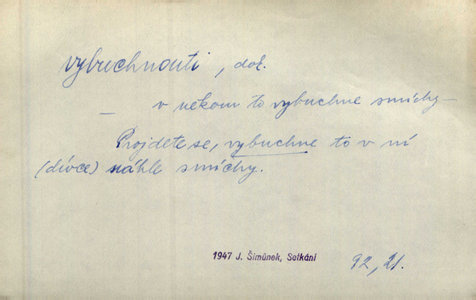 vybuchnouti, dok.
— v někom to vybuchne smíchy —
Projdete se, vybuchne to v ní
(dívce) náhle smíchy.
1947 J. Šimůnek, Setkání
92, 21.